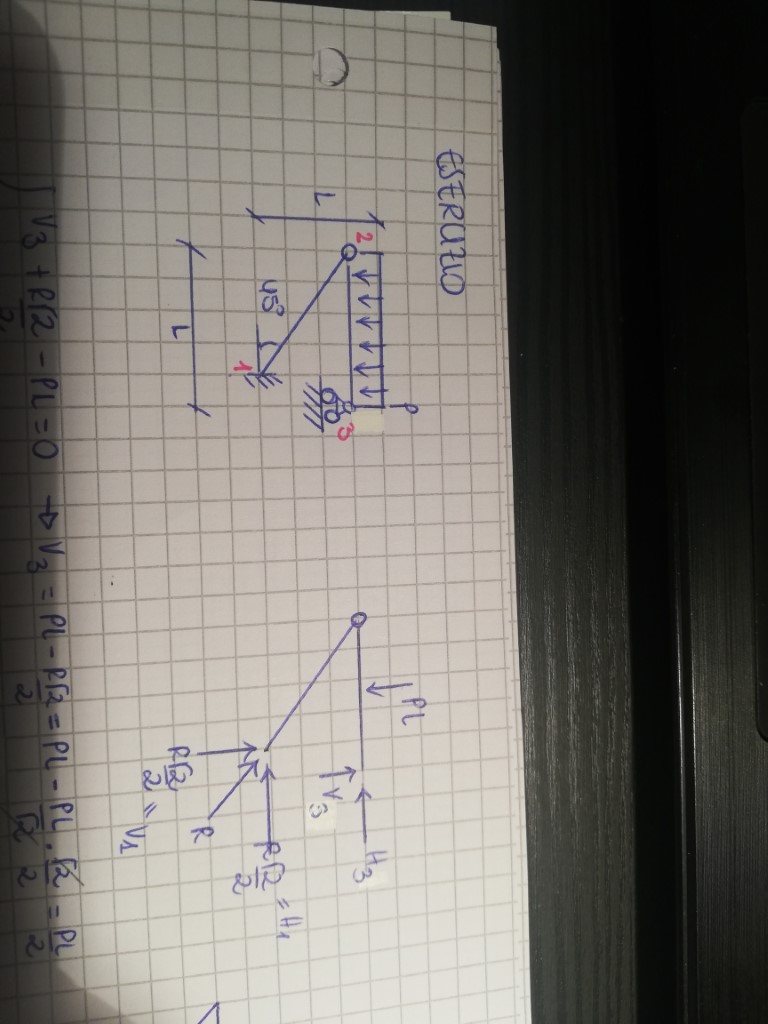 ESERCIZIO
P
2
3
L
45°
1
L
PL
V3
H3
R√2/2 = H1
R
R√2/2 = V1
V3 + R√2/2 - PL = 0 → V3 = PL - R√2/2 = PL - PL/√2 · √2/2 = PL/2